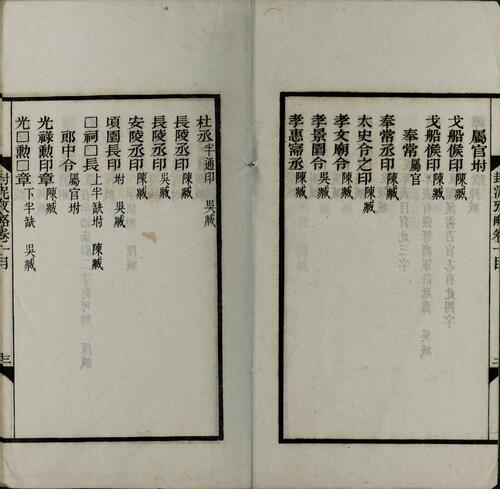 屬官坿
戈船候印陳臧
戈船候印陳臧
奉常屬官
奉常丞印陳臧
太史令之印陳臧
孝文廟令陳臧
孝景園令吳臧
孝惠𡩋丞陳臧
杜丞半通印 吳臧
長陵丞印陳臧
長陵丞印吳臧
安陵丞印陳臧
頃園長印坿 吳臧
□祠□長上半缺坿 陳臧
郎中令屬官坿
光祿勳印章陳臧
光□勳□章下半缺 吳臧
封泥攷略卷一目
三